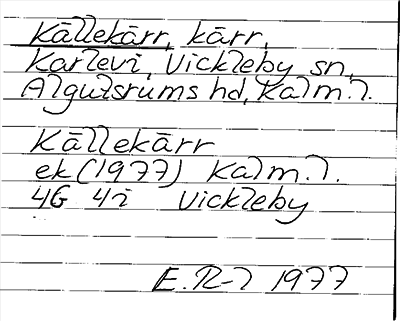 Källekärr, kärr,
Karlevi, Vickleby sn,
Algutsrums hd, Kalm. l.
Källekärr
ek (1977) Kalm. l.
4G 4i Vickleby
E. R-l 1977